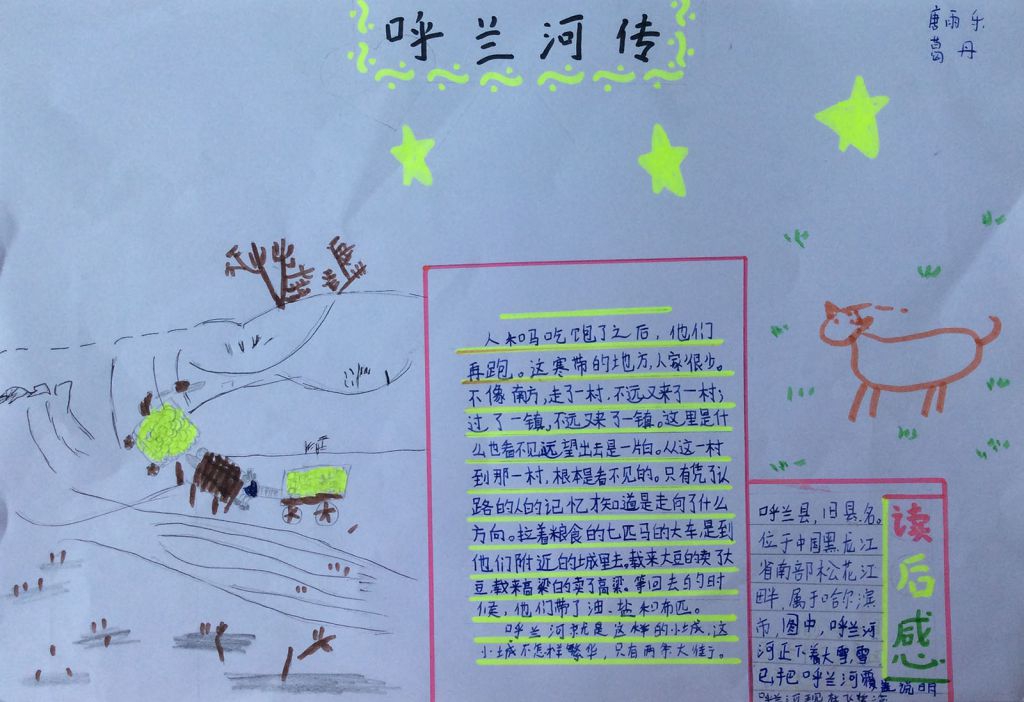 呼兰河传
唐雨乐
葛丹
人和马吃饱了之后，他们
再跑。这寒带的地方，人家很少。
不像南方，走了一村，不远又来了一村；
过了一镇，不远又来了一镇。这里是什
么也看不见远望出去是一片白。从这一村
到那一村，根本是看不见的。只有凭了认
路的人的记忆才知道是走向了什么
方向。拉着粮食的七匹马的大车，是到
他们附近的城里去。载来大豆的卖了大
豆，载来高粱的卖了高粱。等回去的时
候，他们带了油、盐和布匹。
呼兰河就是这样的小城，这
小城不怎样繁华，只有两条大街。
读后感
呼兰县，旧县名。
位于中国黑龙江
省南部松花江
畔，属于哈尔滨
市，图中，呼兰河
河正下着大雪，雪
已把呼兰河覆盖
说明